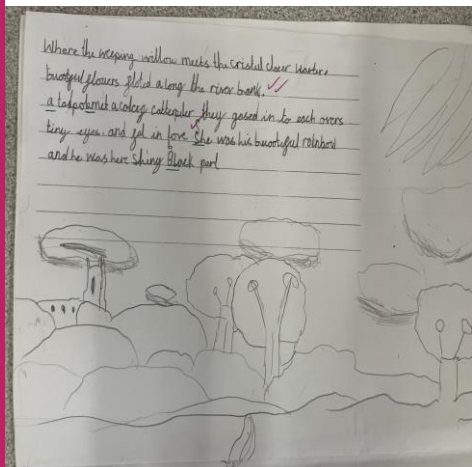 Where the weeping willow meets the cristul cleer warter,
buootyful flowers floted along the river bank.
a tadpole met a caterpiler they gased in to each overs
tiny eyes. and fel in love She was his buootyful rainbow
and he was here Shiny Black perl